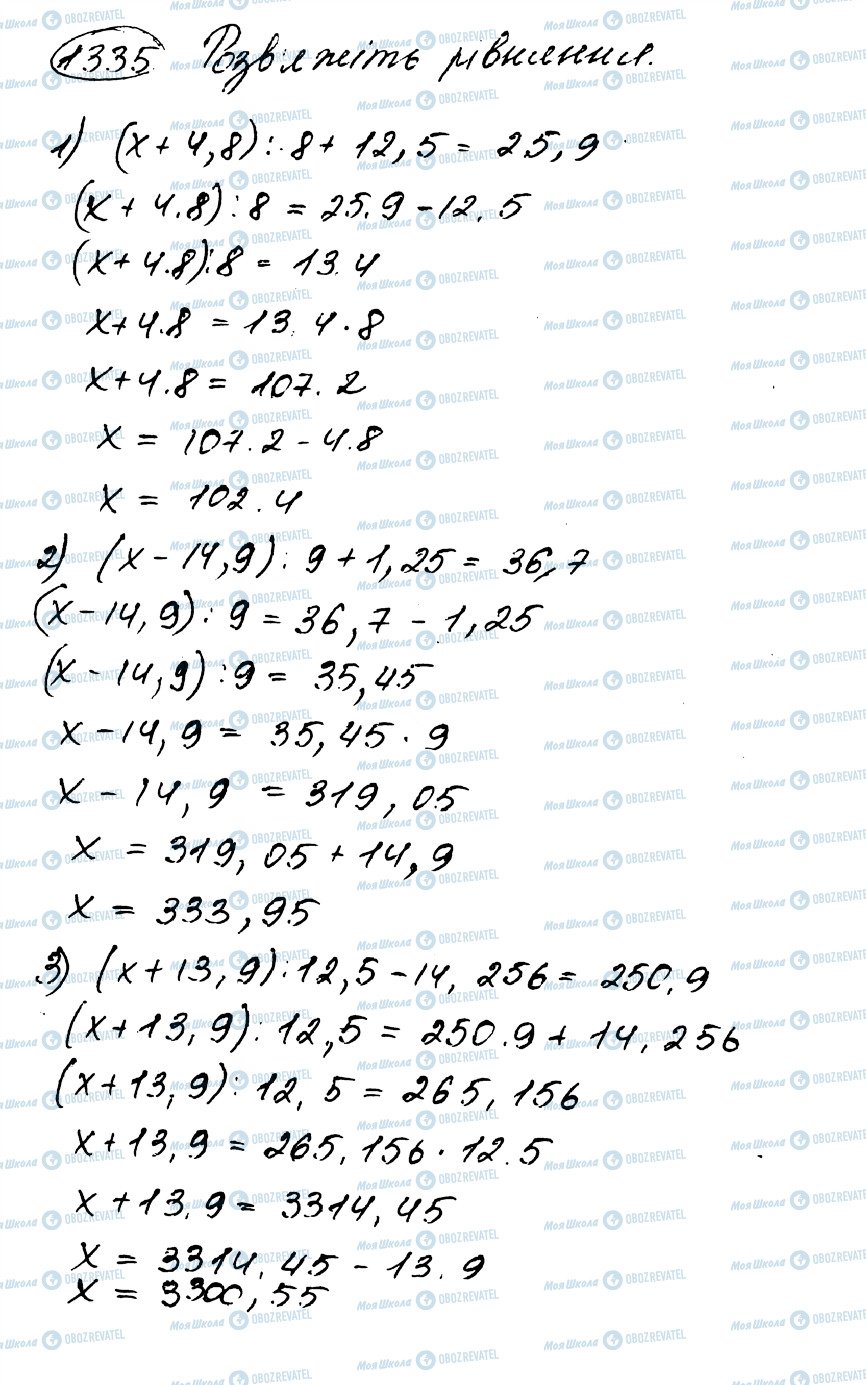 1335 Розвяжіть рівняння.
1) (x + 4,8) : 8 + 12,5 = 25,9
(x + 4.8) : 8 = 25.9 - 12.5
(x + 4.8) : 8 = 13.4
x + 4.8 = 13.4 · 8
x + 4.8 = 107.2
x = 107.2 - 4.8
x = 102.4
2) (x - 14,9) : 9 + 1,25 = 36,7
(x - 14,9) : 9 = 36,7 - 1,25
(x - 14,9) : 9 = 35,45
x - 14,9 = 35,45 · 9
x - 14,9 = 319,05
x = 319,05 + 14,9
x = 333,95
3) (x + 13,9) : 12,5 - 14,256 = 250,9
(x + 13,9) : 12,5 = 250.9 + 14,256
(x + 13,9) : 12,5 = 265,156
x + 13,9 = 265,156 · 12.5
x + 13.9 = 3314,45
x = 3314.45 - 13.9
x = 3300,55
Моя Школа OBOZREVATEL